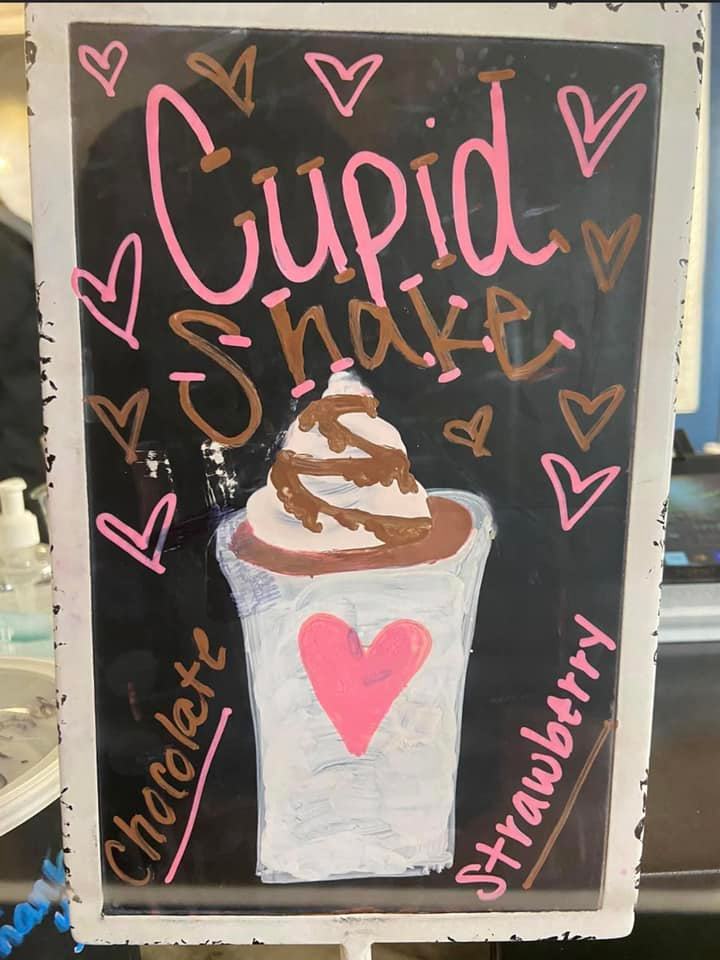 Cupid
Shake
Chocolate
Strawberry